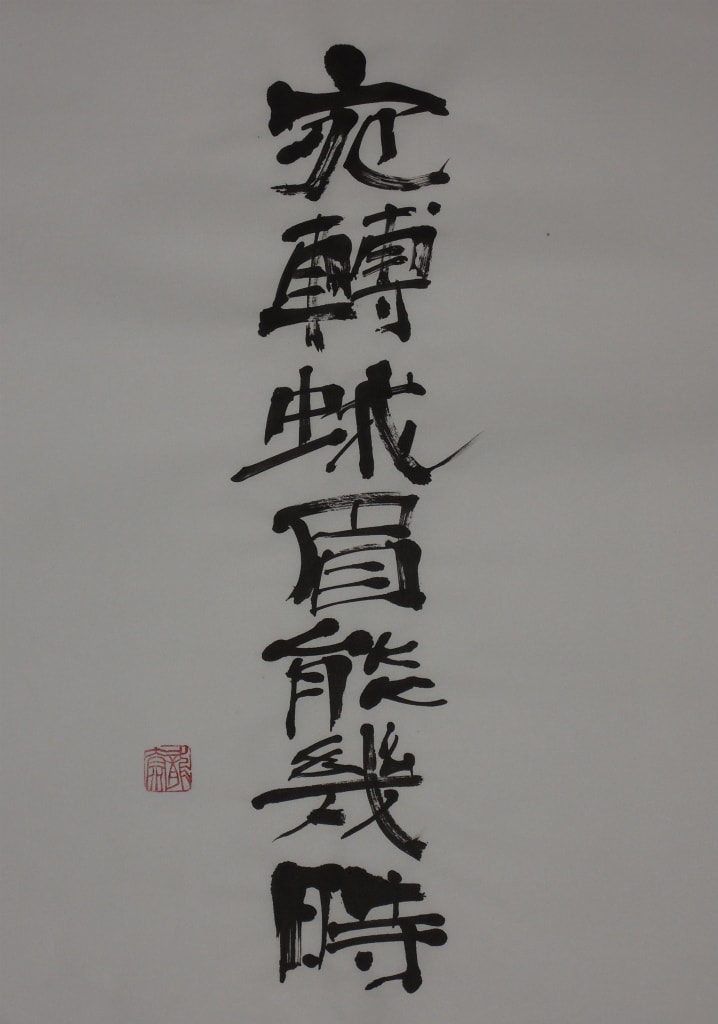 宛轉蛾眉能幾時